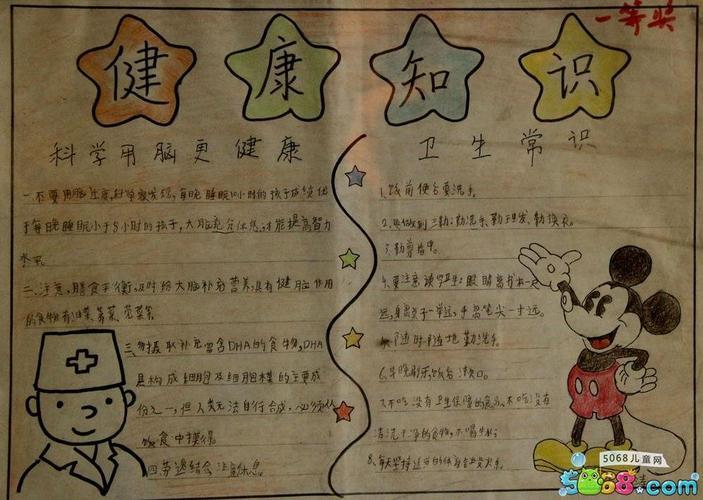 一等奖
健康知识
科学用脑更健康
一、不要用脑过度,科学家发现,每晚睡眠10小时的孩子成绩优
于每晚睡眠小于8小时的孩子,大脑充分休息,才能提高智力
水平。
二、注意,膳食平衡,及时给大脑补充营养,具有健脑作用
的食物有
三、DHA的食物,DHA
是构成细胞及细胞膜的主要成
份之一,但人类无法自行合成,必须从
饮食中摄得。
四、劳逸结合,注意休息。
卫生常识
1、饭前便后要洗手。
2、要做到三勤:勤洗手、勤理发、勤换衣。
3、勤剪指甲。
4、要注意读写卫生:眼睛离书本一
尺,身离桌子一拳远,手离笔尖一寸远。
5、随时随地勤洗手。
6、早晚刷牙,饭后漱口。
7、不吃没有卫生保障的食品,不吃没有
清洗干净的食物,不喝生水。
8、每天坚持
5068儿童网
5068.com